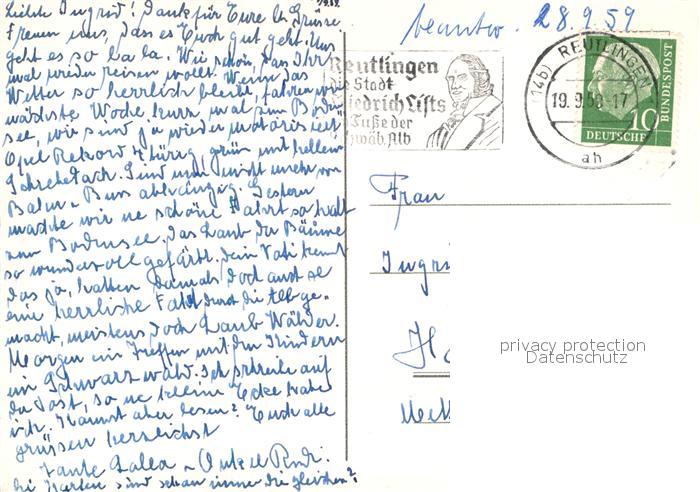 19.9.59
Liebe Ingrid! Dank für Eure lb. Grüsse
Freuen uns, dass es Euch gut geht. Uns
geht es so la la. Wie schön, dass Ihr
mal wieder reisen wollt. Wenn das
Wetter so herrlich bleibt, fahren wir
nächste Woche kurz mal zum Boden
see, wir sind ja wieder motorisiert
Opel Rekord 4 türig, grün mit hellem
Schiebedach. Sind nun nicht mehr von
Bahn u. Bus abhängig. Gestern
machten wir ne schöne Fahrt so halb
zum Bodensee. Das Laub der Bäume
so wundervoll gefärbt. Dein Vati kennt
das ja, hatten damals doch auch
eine herrliche Fahrt durch die Alb ge-
macht, meistens doch Laub Wälder.
Morgen ein Treffen mit den Kindern
im Schwarzwald. Ich schreibe auf
der Post, so ne kleine Ecke habe
ich. Kannst aber lesen? Euch alle
grüssen herzlichst
Tante Onkel Rudi.
Karten sind schon immer die gleichen?
beantw. 28.9.59
Reutlingen
die Stadt
Friedrich Lists
am Fuße der
Schwäb. Alb
(14b) REUTLINGEN
19.9.59-17
ah
10
DEUTSCHE
BUNDESPOST
Frau
Ingri
H
privacy protection
Datenschutz